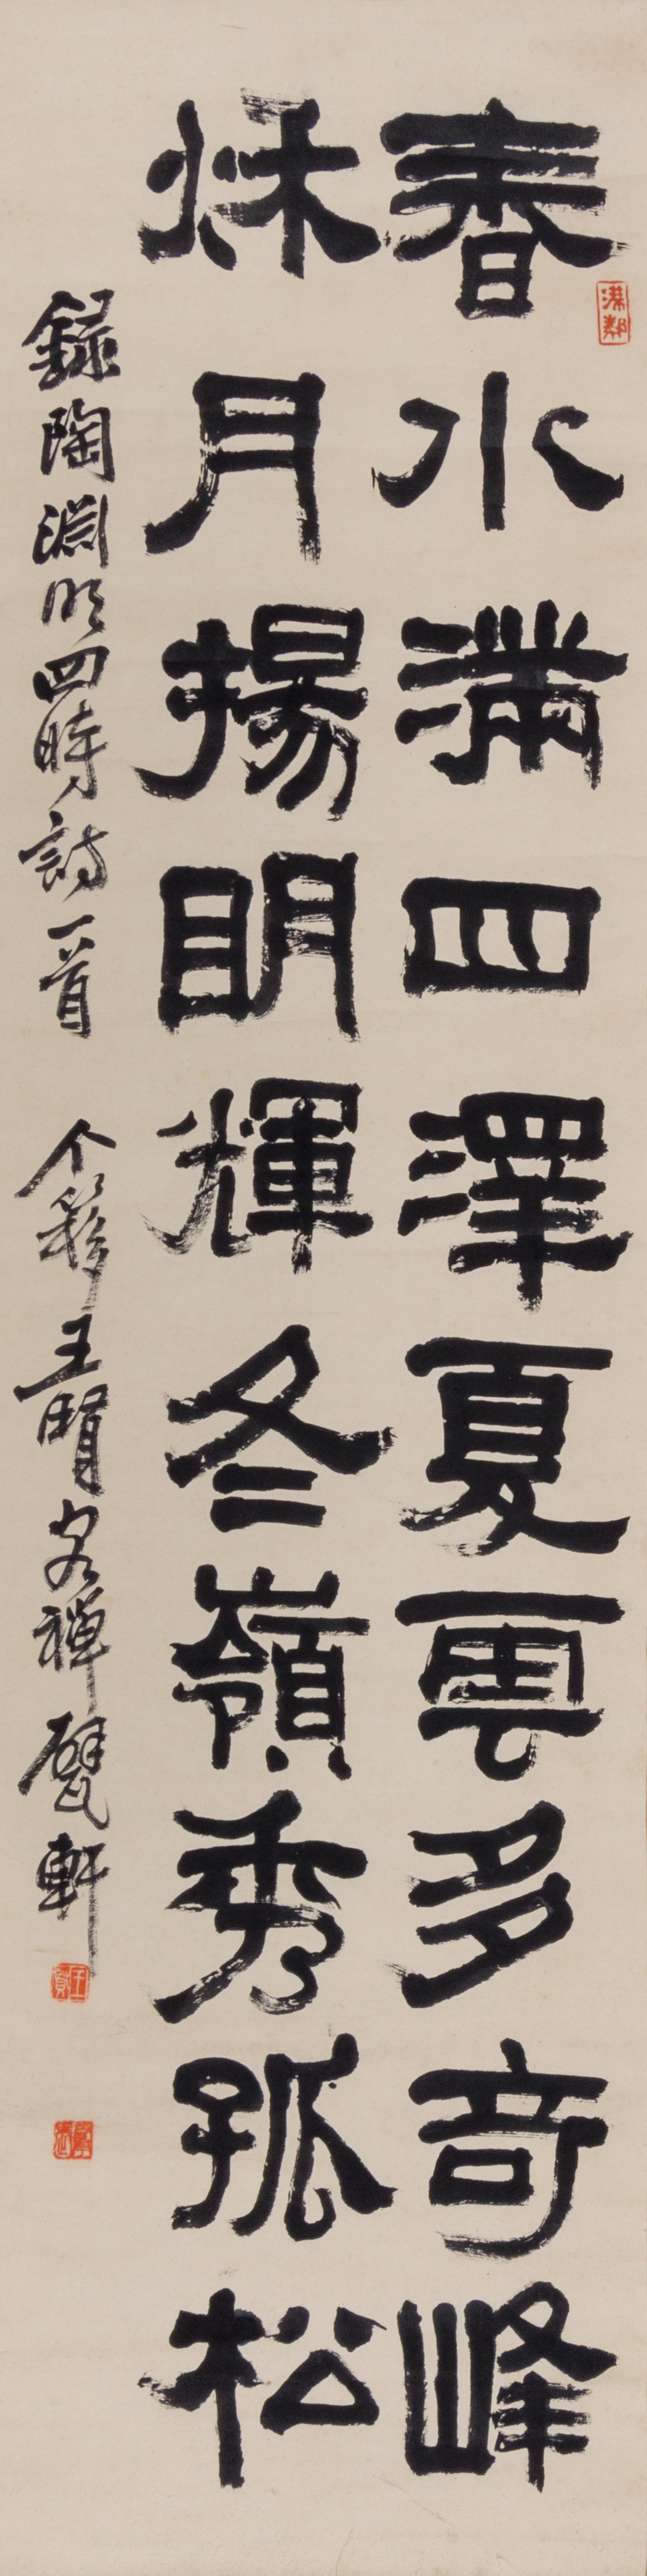 春水滿四澤夏雲多奇峰
秌月揚明輝冬嶺秀孤松
錄陶淵明四時詩一首 个簃王賢客禪甓軒
王賢